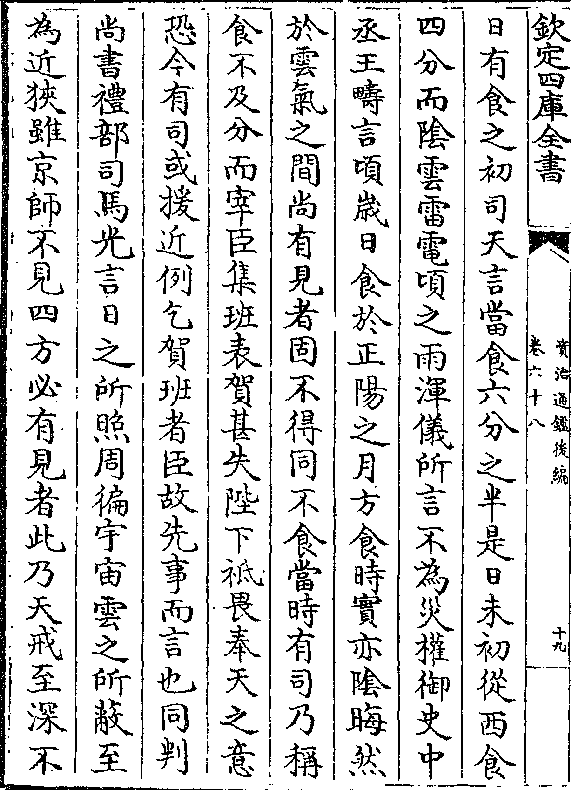 欽定四庫全書
資治通鑑後編
卷六十八
十九
日有食之初司天言當食六分之半是日未初從西食
四分而隂雲雷電頃之雨渾儀所言不為災權御史中
丞王疇言頃歲日食於正陽之月方食時實亦隂晦然
於雲氣之間尚有見者固不得同不食當時有司乃稱
食不及分而宰臣集班表賀甚失陛下祗畏奉天之意
恐今有司或援近例乞賀班者臣故先事而言也同判
尚書禮部司馬光言日之所照周徧宇宙雲之所蔽至
為近狹雖京師不見四方必有見者此乃天戒至深不